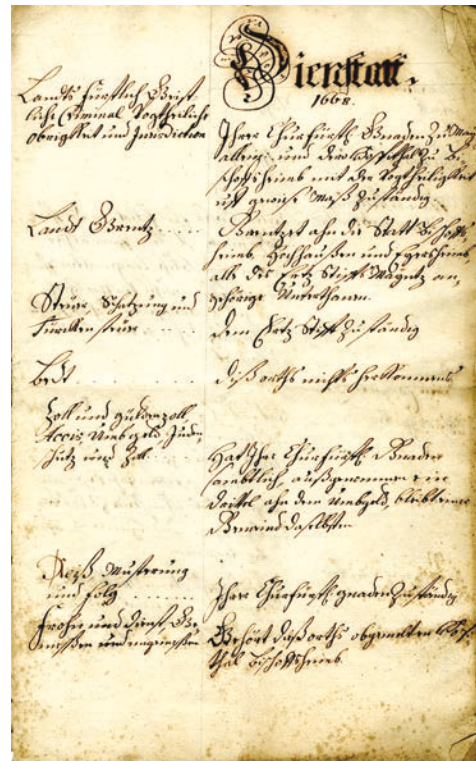 Dienstatt.
1668.
Landts Fürstlich Geist
liche Criminal Vogtheiliche
Obrigkeit und Jurisdiction
Ihrer Churfürstl. Gnaden Zu
allein und dero Hospithal Zu Bi
schoffsheimb mit der Vogtheiligkeit
uff gewiese Maß Zuständig
Landt Grentz
Grentzet ahn die Statt Bischoffs
heimb, Hochhaußen und
alle des Ertz Stiffts Mayntz an
gehörige Unterthanen.
Steuer, Schatzung und
Türcken steuer
dem Ertz Stifft Zuständig
Bedt
diß orths nichts herkommens
Zoll und güldenzoll
Accis, Umbgeld, Juden
schutz und Zoll
Hat Ihre Churfürstl. Gnaden
sambtlich, außgenommen ein
drittel ahn dem Umbgeld, bleibt einer
Gemeind daselbsten
Reiß, Musterung
und folg
Ihrer Churfürstl. gnaden Zuständig
Frohn und dienst Ge
meßen und ungemeßen
Gehört diß orths obgemelten Hospi
thal Bischoffsheimb.